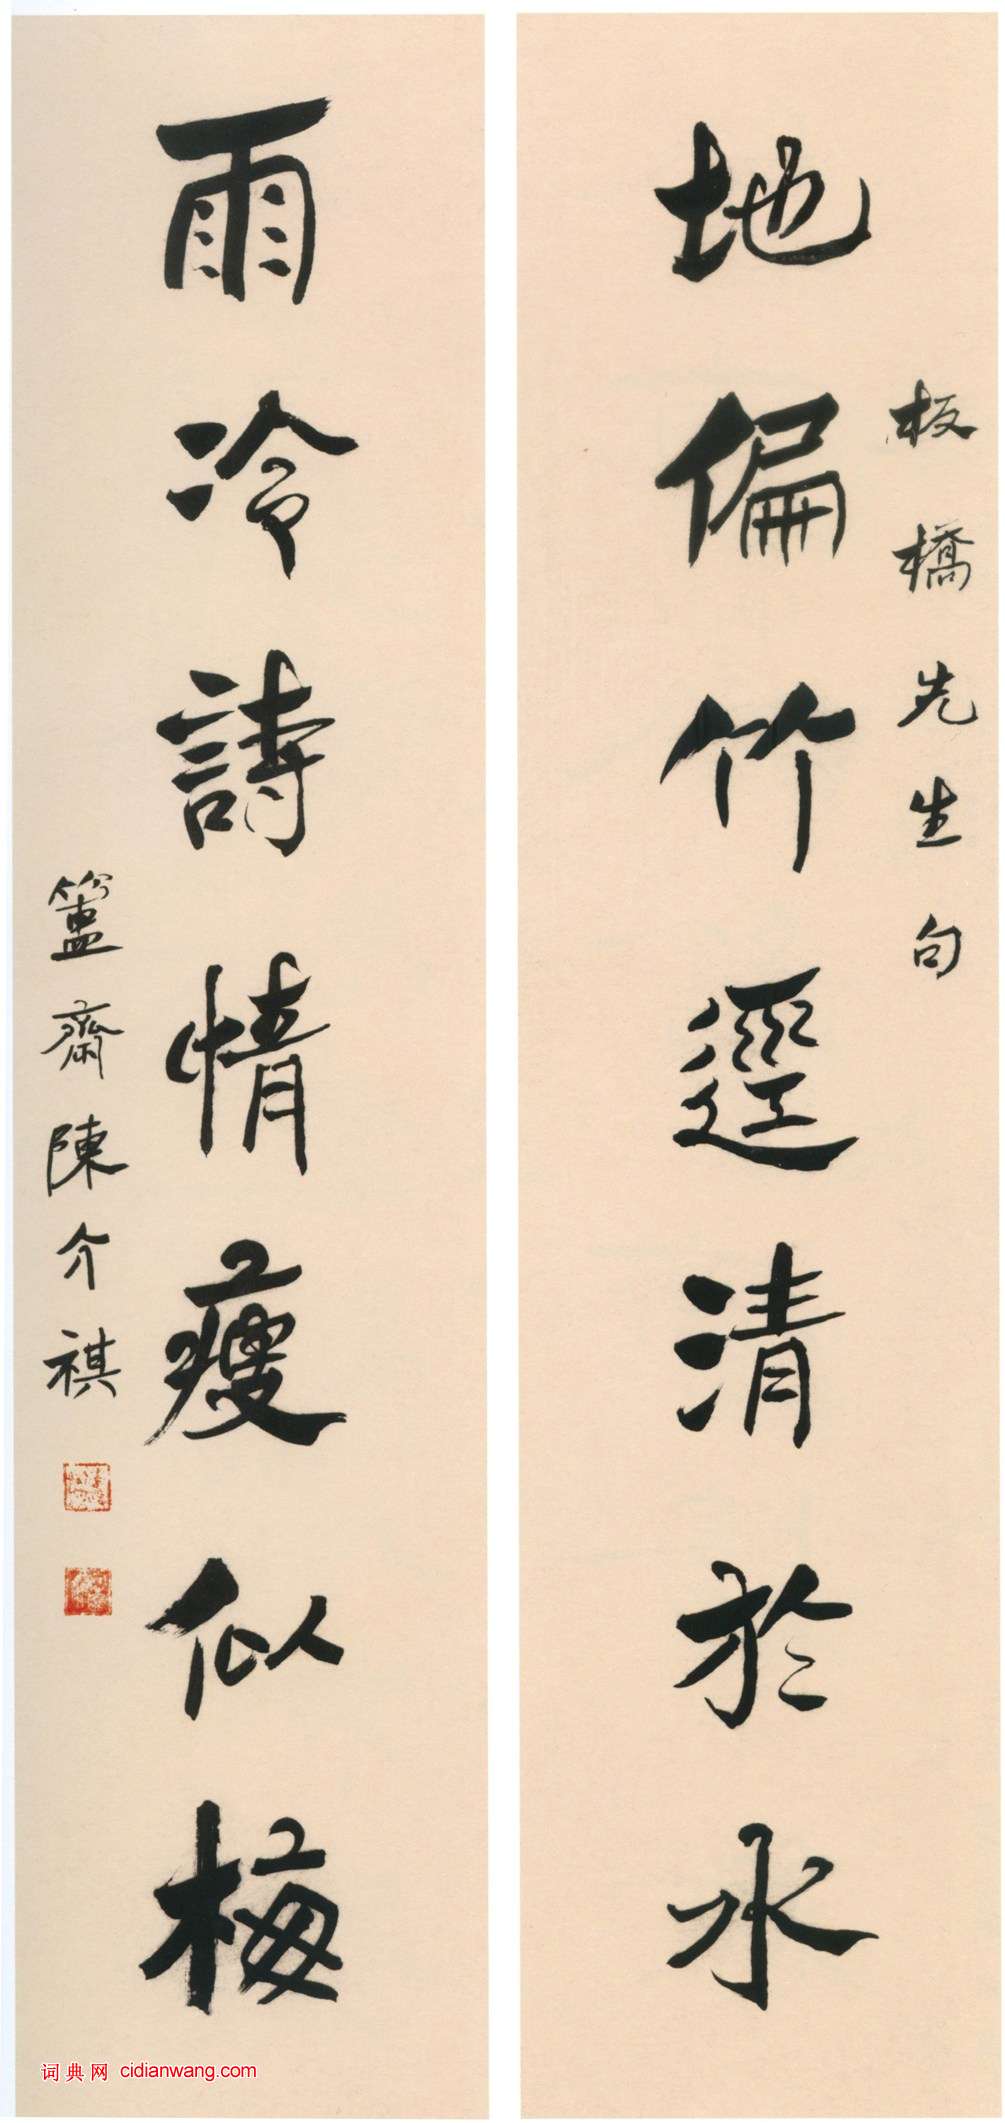 板橋先生句
地偏竹逕清於水
雨冷詩情瘦似梅
簠齋陳介祺
词典网 cidianwang.com